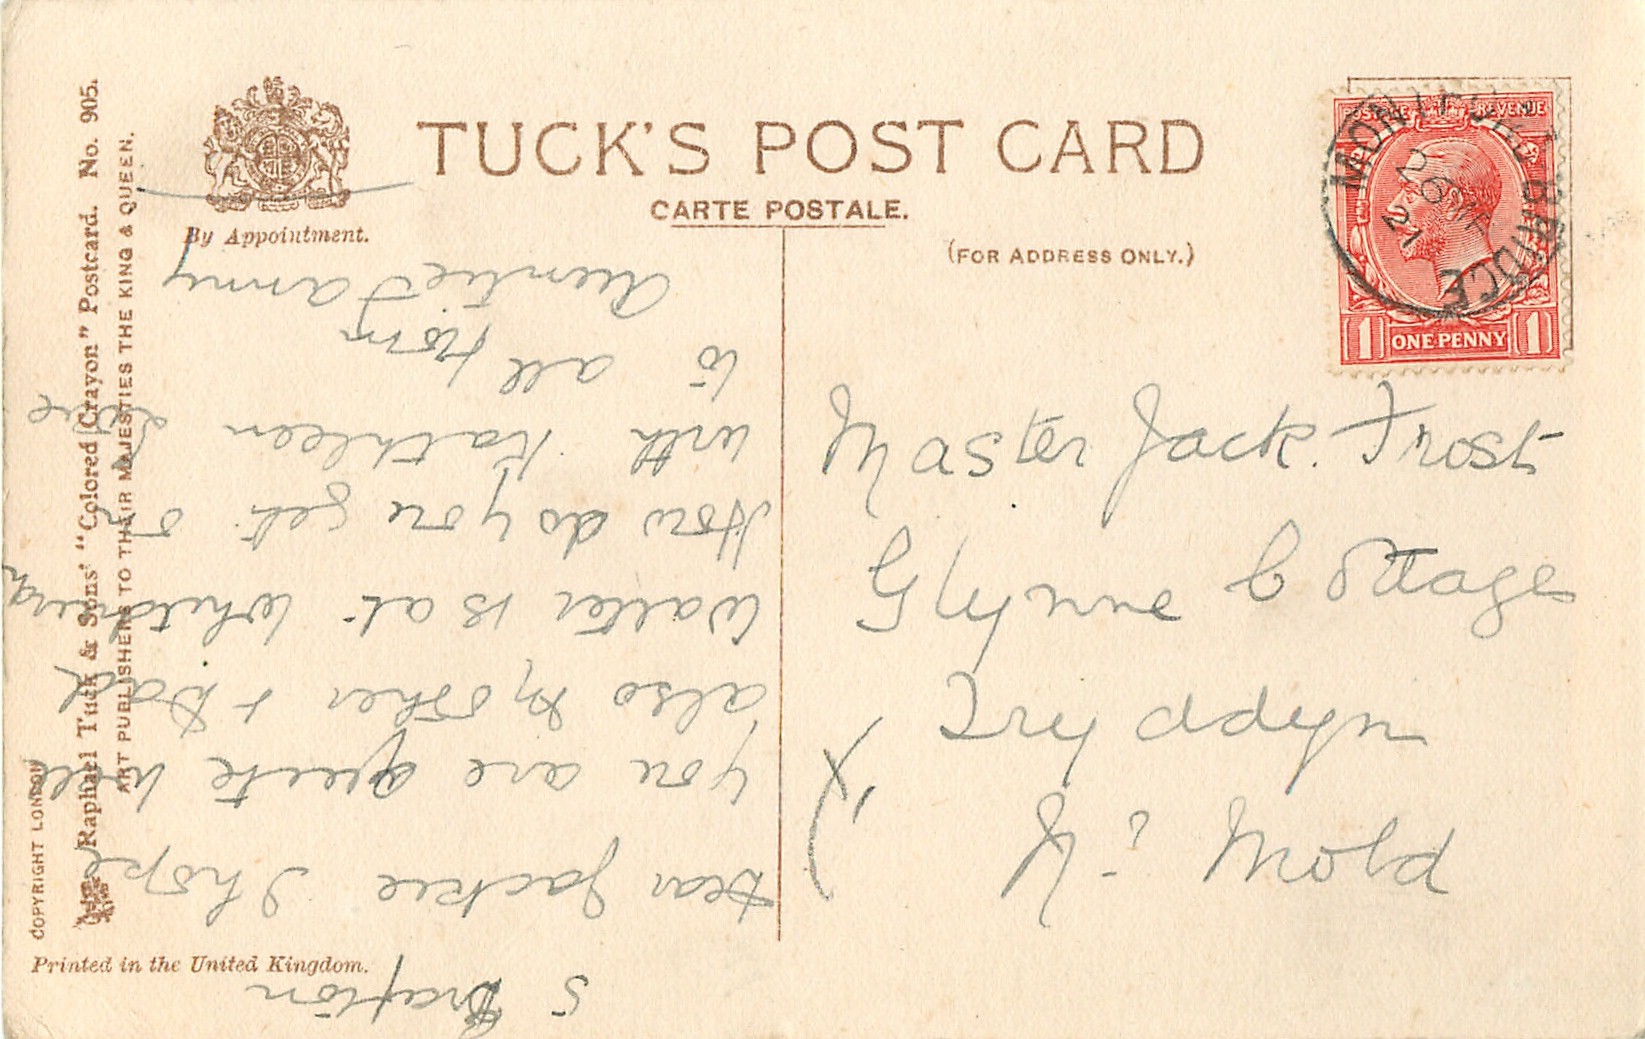 TUCK'S POST CARD
CARTE POSTALE.
(FOR ADDRESS ONLY.)
By Appointment.
Raphael Tuck & Sons' "Colored Crayon" Postcard. No. 905.
ART PUBLISHERS TO THEIR MAJESTIES THE KING & QUEEN.
COPYRIGHT LONDON
Printed in the United Kingdom.
POSTAGE REVENUE
1 ONE PENNY 1
MONTFORD BRIDGE
26 MR
21
Master Jack Frost
Glynne Cottages
Tryddyn
Nr Mold
S Drayton
Dear Jackie I hope
you are quite well
also Mother & Dad
Walter is at
How do you get on
with Kathleen love
to all from
Auntie Fanny